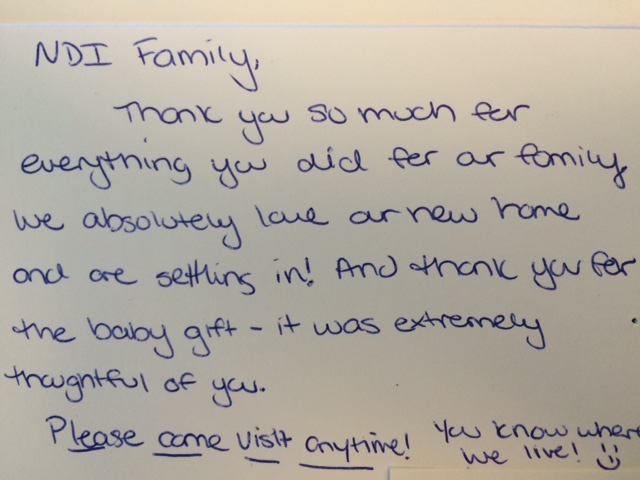 NDI Family,
Thank you so much for
everything you did for our family
we absolutely love our new home
and are settling in! And thank you for
the baby gift - it was extremely
thoughtful of you.
Please come visit anytime! You know where
we live! :)